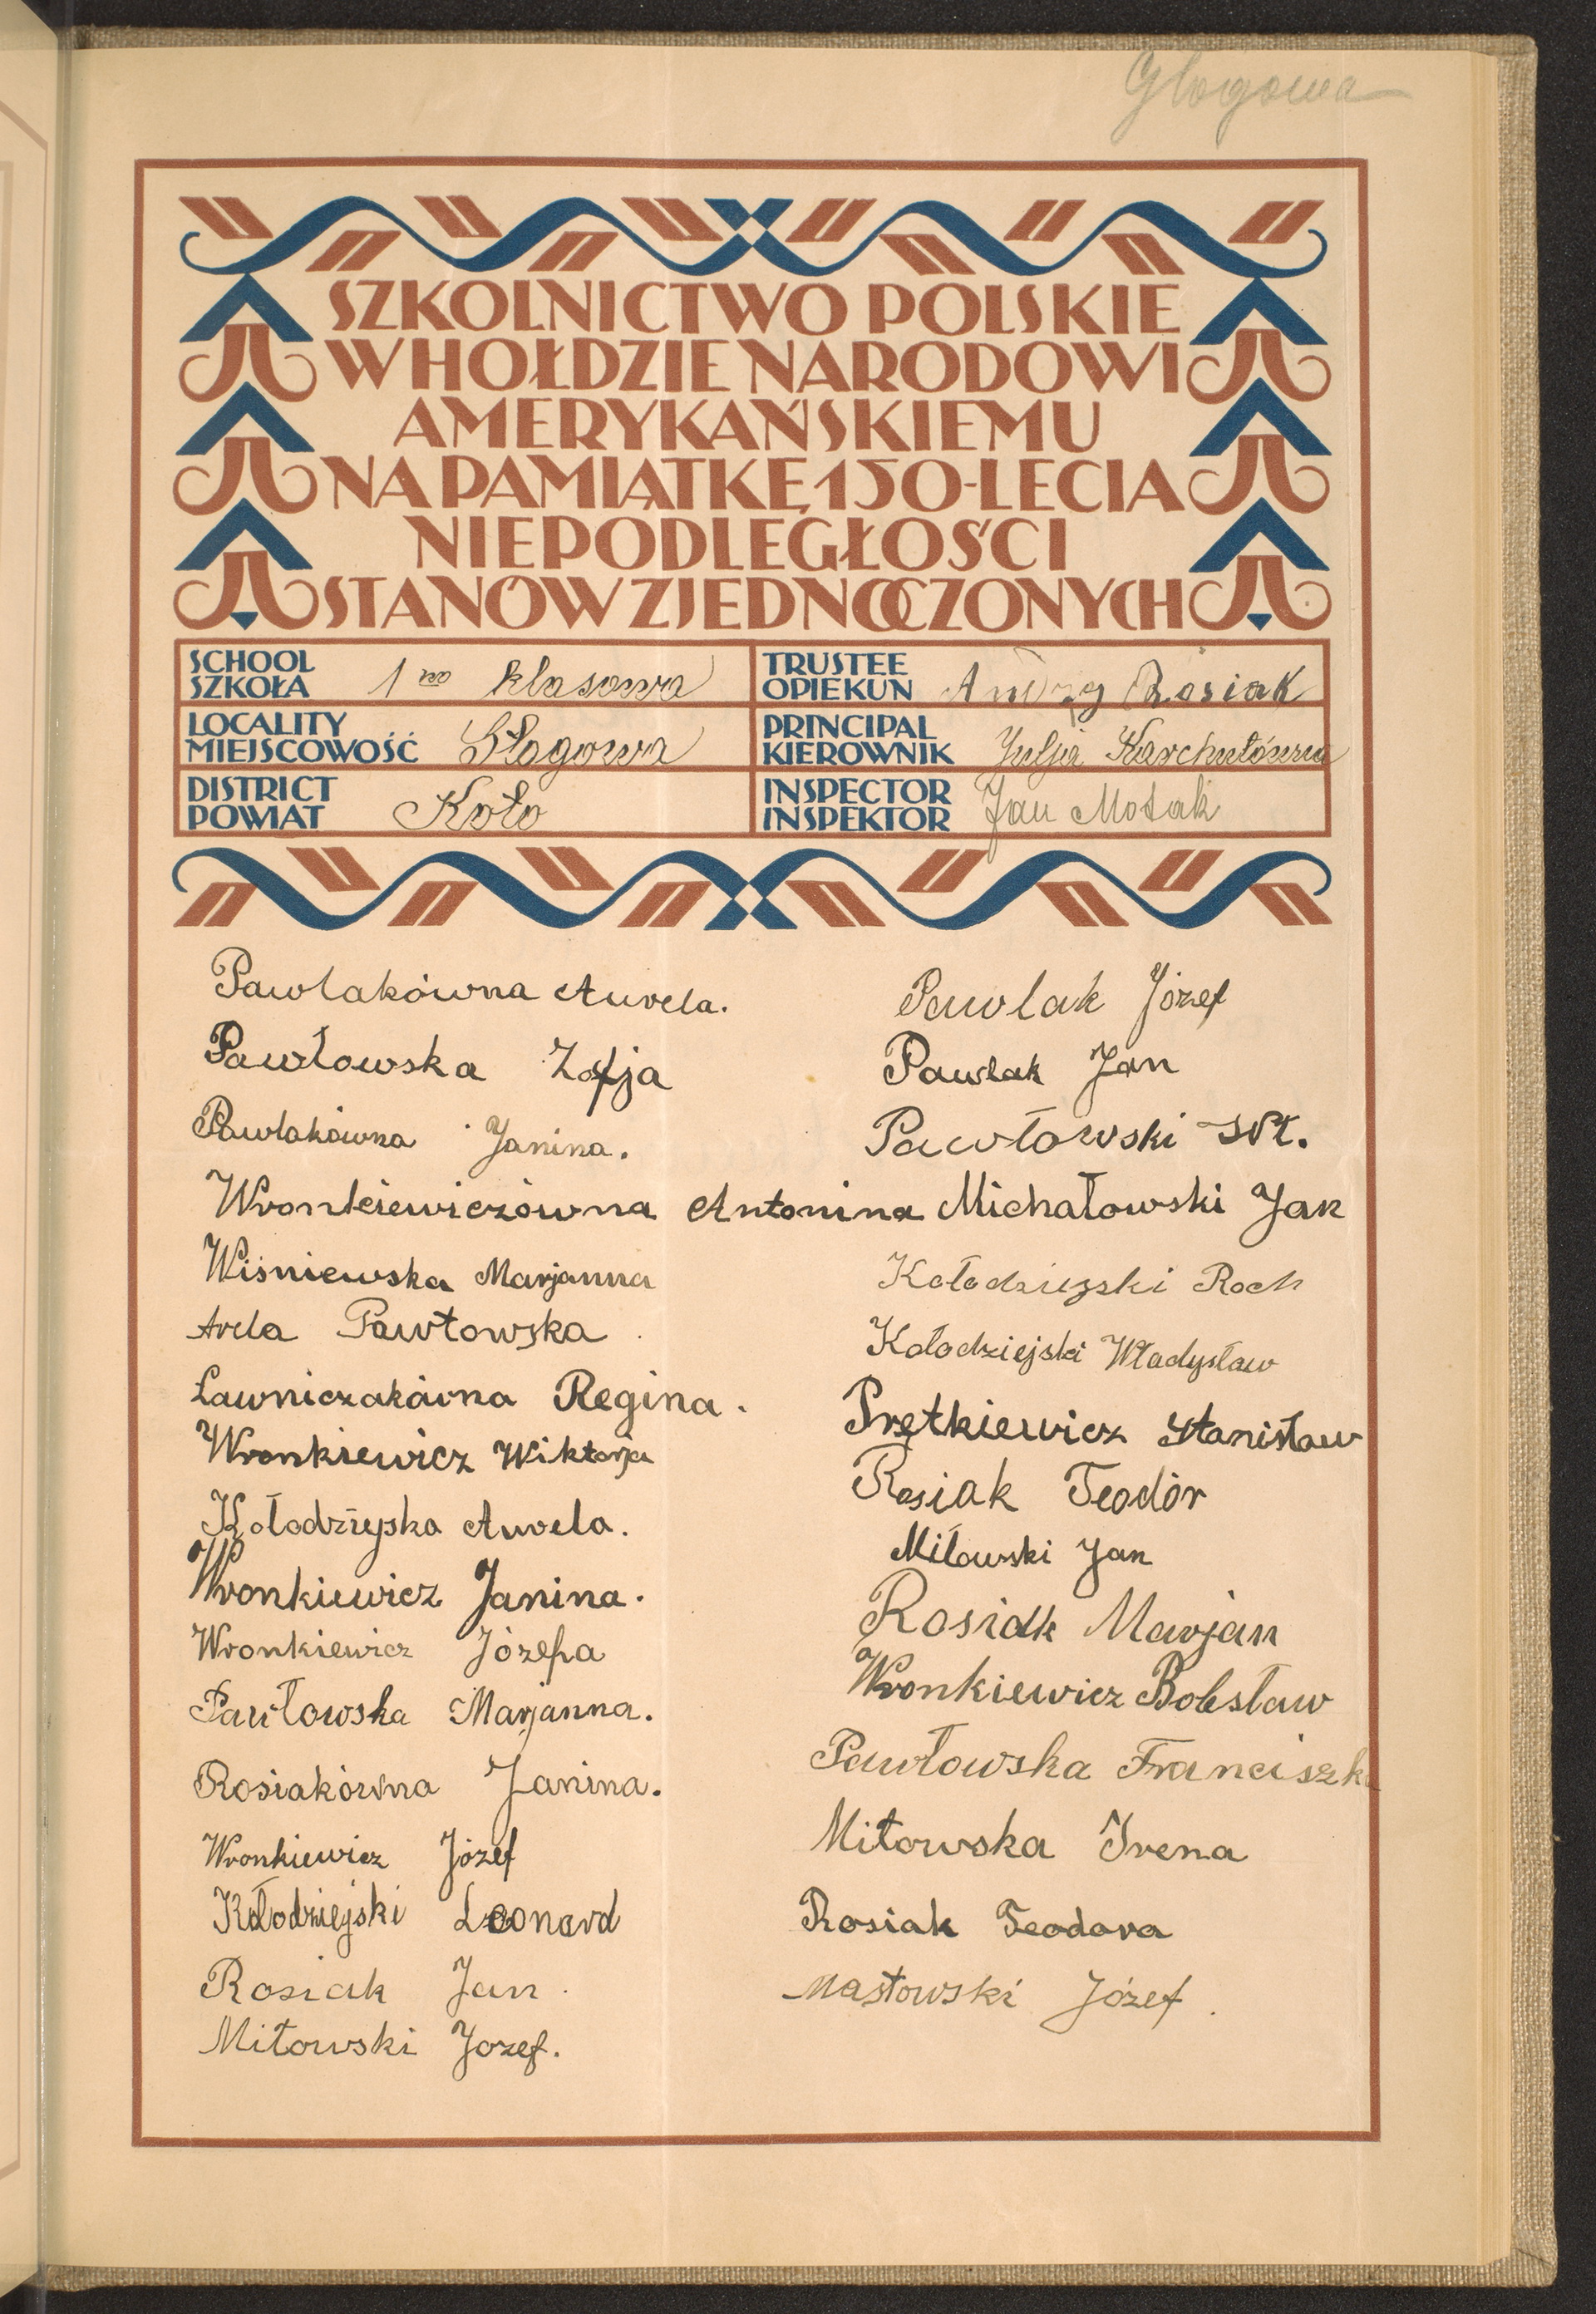 Głogowa
SZKOLNICTWO POLSKIE
W HOŁDZIE NARODOWI
AMERYKAŃSKIEMU
NA PAMIĄTKĘ 150-LECIA
NIEPODLEGŁOŚCI
STANÓW ZJEDNOCZONYCH
SCHOOL
SZKOŁA
1 no klasowa
TRUSTEE
OPIEKUN
Andrzy Rosiak
LOCALITY
MIEJSCOWOŚĆ
Głogowa
PRINCIPAL
KIEROWNIK
Julja
DISTRICT
POWIAT
Koło
INSPECTOR
INSPEKTOR
Jan
Pawlakówna Aurela.
Pawłowska Zofja
Pawlakówna Janina.
Wronkiewiczówna Antonina
Wiśniewska Marjanna
Arela Pawłowska
Ławniczakówna Regina.
Wronkiewicz Wiktorja
Kołodziejska Aurela.
Wronkiewicz Janina.
Wronkiewicz Józefa
Pawłowska Marjanna.
Rosiakówna Janina.
Wronkiewicz Józef
Kołodziejski Leonard
Rosiak Jan.
Miłowski Jozef.
Pawlak Józef
Pawlak Jan
Pawłowski St.
Michałowski Jan
Kołodziejski Roch
Kołodziejski Władysław
Prętkiewicz Stanisław
Rosiak Teodór
Miłowski Jan
Rosiak Marjan
Wronkiewicz Bolesław
Pawłowska Franciszka
Miłowska Irena
Rosiak Teodora
Masłowski Józef.